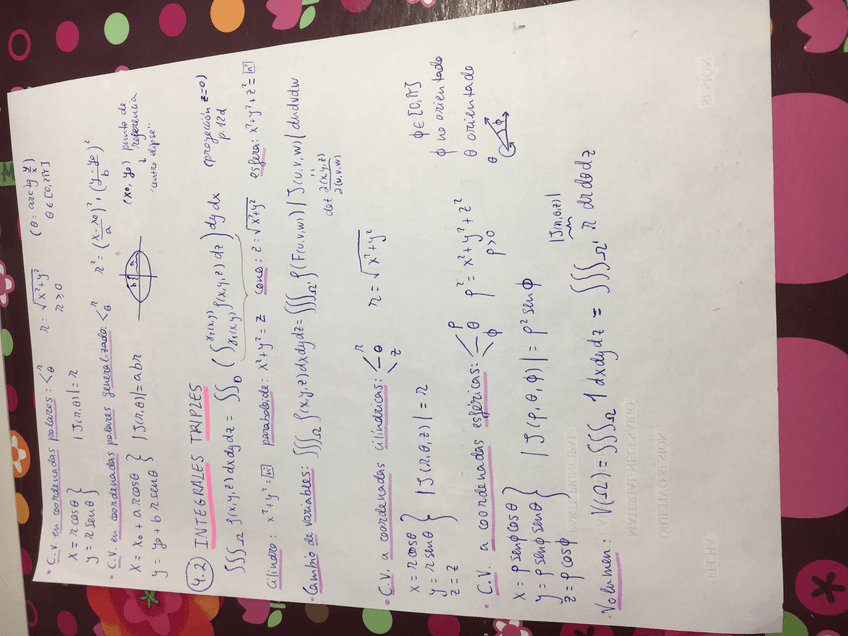 • C.V. en coordenadas polares: < r θ r = √x²+y² (θ = arctg y/x)
x = r cosθ } |J(r,θ)| = r r ≥ 0 θ ∈ [0,2π]
y = r senθ
• C.V. en coordenadas polares generalizado: < r θ r² = (x-x₀/a)² + (y-y₀/b)²
x = x₀ + a r cosθ } |J(r,θ)| = abr b a (x₀, y₀) punto de referencia
y = y₀ + b r senθ "centro elipse"
4.2 INTEGRALES TRIPLES
∭_Ω f(x,y,z) dxdydz = ∬_D (∫_{γ₁(x,y)}^{γ₂(x,y)} f(x,y,z) dz) dy dx (proyección z=0)
p.12d
Cilindro: x²+y² = n² paraboloide: x²+y² = z cono: z = √x²+y² esfera: x²+y²+z² = n²
• Cambio de variables: ∭_Ω f(x,y,z) dxdydz = ∭_Ω' f(F(u,v,w)) |J(u,v,w)| dudvdw
det ∂(x,y,z)/∂(u,v,w)
• C.V. a coordenadas cilíndricas: < r θ z r = √x²+y²
x = r cosθ
y = r senθ } |J(r,θ,z)| = r
z = z
• C.V. a coordenadas esféricas: < ρ θ ϕ ρ² = x²+y²+z² ϕ ∈ [0,π]
ρ>0 ϕ no orientado
x = ρ senϕ cosθ θ orientado
y = ρ senϕ senθ } |J(ρ,θ,ϕ)| = ρ² senϕ θ ϕ
z = ρ cosϕ
|J(r,θ,z)|
• Volumen: V(Ω) = ∭_Ω 1 dxdydz = ∭_Ω' r drdθdz